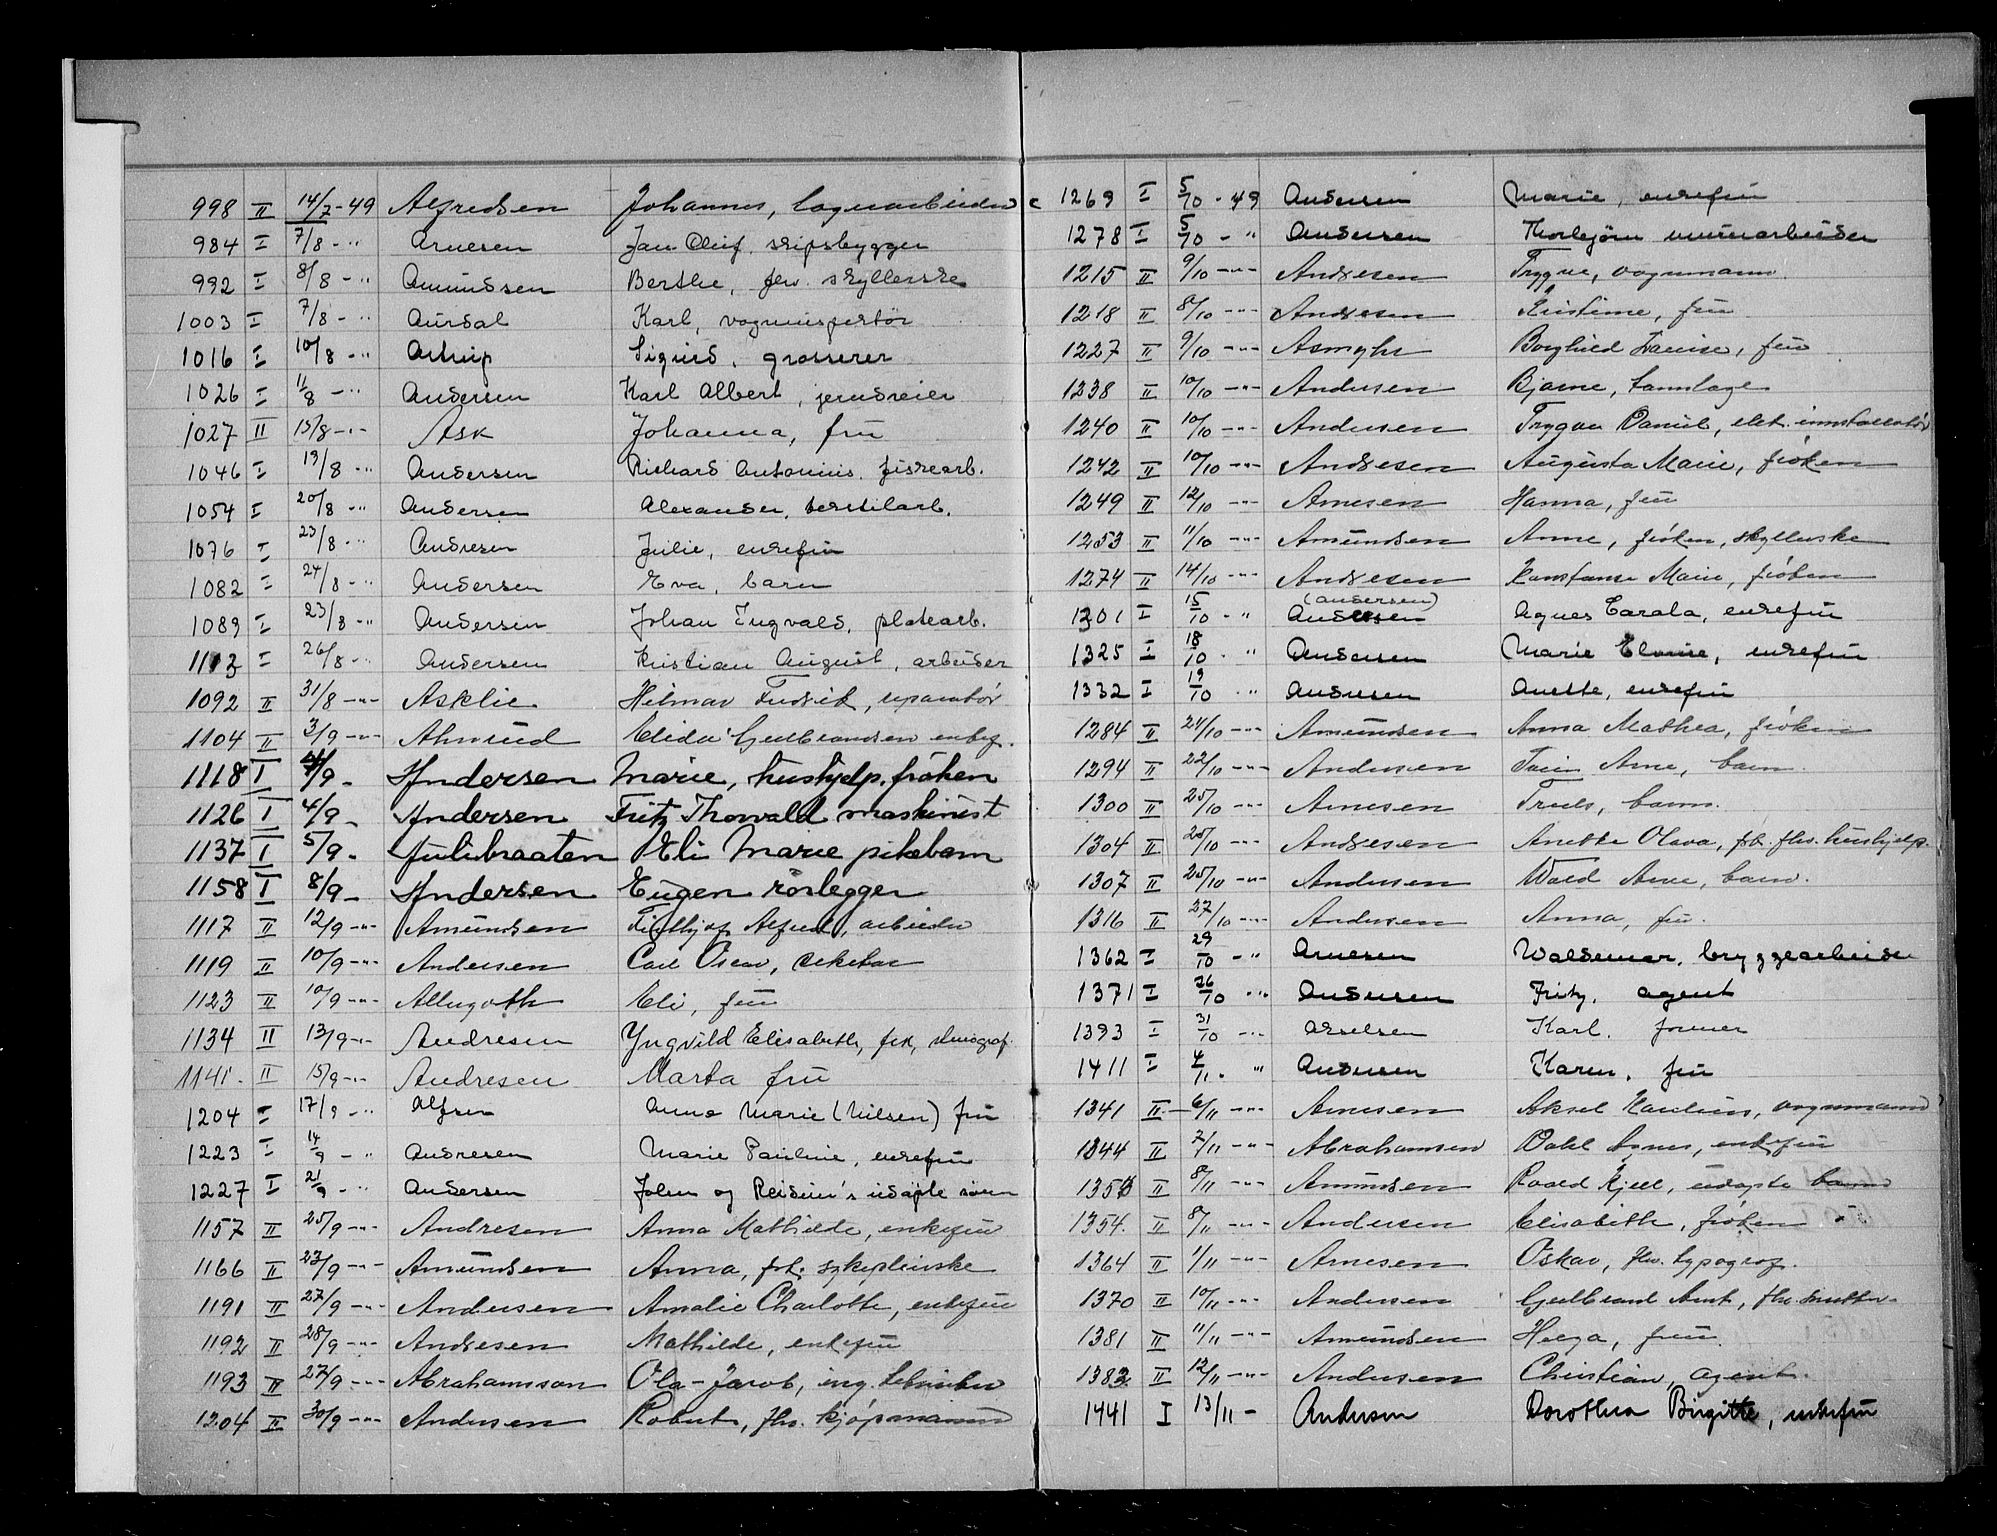 998 II 14/7 - 49 Alfredsen Johannes, lagerarbeider
984 I 7/8 - " Arnesen Jan Oluf, skipsbygger
992 I 8/8 - " Amundsen Berthe, fhv. skyllerske
1003 I 7/8 - " Aursal Karl, vognuispektör
1016 I 10/8 - " Astrup Sigurd, grosserer
1026 I 11/8 - " Andersen Karl Albert, jerndreier
1027 II 15/8 - " - Ask Johanna, fru
1046 I 19/8 - " Andersen Richard Antonius, fiskearb.
1054 I 20/8 - " Andersen Alexander, tekstilarb.
1076 I 23/8 - " Andresen Julie, enkefru
1082 I 24/8 - " Andersen Eva, barn
1089 I 23/8 - " Andersen Johan Ingvald, platearb.
1113 I 26/8 - " Andersen Kristian August, arbeider
1092 II 31/8 - " - Asklie Hilmar Fredrik, reparatör
1104 II 3/9 - " - Ahnrud Elida Gulbrandsen enkef.
1118 I 4/9 - Andersen Marie, hushjelp, fröken
1126 I 4/9 - Andersen Fritz Thorvald maskinist
1137 I 5/9 - Julibraaten Eli Marie pikebarn
1158 I 8/9 - Andersen Eugen rörlegger
1117 II 12/9 - " - Amundsen Fridtjof Alfred, arbeider
1119 II 10/9 - " - Andersen Carl Oscar,
1123 II 10/9 - " - Allugoth Eli, fru
1134 II 13/9 - " - Andresen Yngvild Elisabeth, frk, stenograf.
1141. II 15/9 - " - Andresen Marta fru
1204 I 17/9 - " Alfsen Anna Marie (Nilsen) fru
1223 I 14/9 - " Andresen Marie Pauline, enkefru
1227 I 21/9 - " Andersen John og Reidun's udöpte sönn
1157 II 25/9 - " - Andresen Anna Mathilde, enkefru
1166 II 23/9 - " - Amundsen Anna, frk. sykepleierske
1191 II 27/9 - " - Andersen Amalie Charlotte, enkefru
1192 II 28/9 - " - Andresen Mathilde, enkefru
1193 II 27/9 - " - Abrahamson Ola-Jacob, ing.
1204 II 30/9 - " - Andersen Robert, fhv. kjöpmann
1269 I 5/10 - 49 Andersen Marie, enkefru
1278 I 5/10 - " Andersen Thorbjörn murerarbeider
1215 II 9/10 - " - Andresen Trygve, vognmann
1218 II 8/10 - " - Andresen Kristine, fru
1227 II 9/10 - " - Asmyhr Borghild Louise, fru
1238 II 10/10 - " - Andersen Bjarne, tannlege
1240 II 10/10 - " - Andersen Trygve Daniel, elek. innstallatör
1242 II 10/10 - " - Andresen Augusta Marie, fröken
1249 II 12/10 - " - Arnesen Hanna, fru
1253 II 11/10 - " - Amundsen Anne, fröken, skyllerske
1274 II 14/10 - " - Andresen Konstanse Marie, fröken
(Andersen)
1301 I 15/10 - " Andresen Agnes Carala, enkefru
1325 I 18/10 - " Andersen Marie Elonise, enkefru
1332 I 19/10 - " Andresen Anette, enkefru
1284 II 24/10 - " - Amundsen Anna Mathea, fröken
1294 II 22/10 - " - Andersen Arne, barn
1300 II 25/10 - " - Arnesen Truls, barn.
1304 II 25/10 - " - Andresen Anette Olava, frk. fhv. hushjelp.
1307 II 25/10 - " - Andersen Wold Arne, barn.
1316 II 27/10 - " - Andersen Anna, fru.
1362 I 29/10 - " Arnesen Waldemar, bryggearbeider
1371 I 26/10 - " Andersen Fritz, agent
1393 I 31/10 - " Akselsen Karl, former
1411 I 4/11. " Andersen Karen, fru
1341 II - 6/11 - " - Arnesen Aksel Paulius, vognmann
1344 II 7/11 - " - Abrahamsen Dahl Agnes, enkefru
1353 II 8/11 - " - Amundsen Roald Kjell, udöpte barn
1354. II 8/11 - " - Andersen Elisabeth, fröken
1364 II 1/11 - " - Arnesen Oskar, fhv. typograf.
1370 II 10/11 - " - Andersen Gulbrand Arnt, fhv.
1381 II 11/11 - " - Amundsen Helga, fru
1383. II 12/11 - " - Andersen Christian, agent.
1441 I 13/11 - Andersen Dorothea Birgitte, enkefru